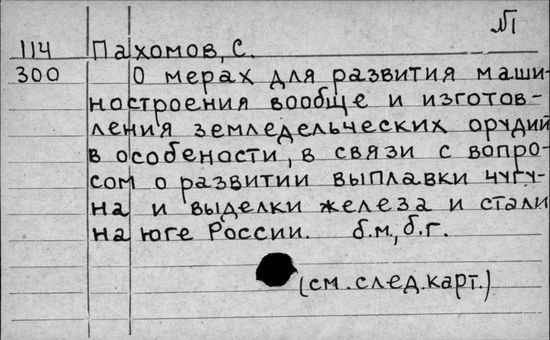 П
114 Пахомов, С.
300 О мерах для развития маши-
ностроения вообще и изготов-
ления земледельческих орудий
в особености, в связи с вопро-
сом о развитии выплавки чугу-
на и выделки железа и стали
на юге России. б.м., б.г.
(см. след. карт.)